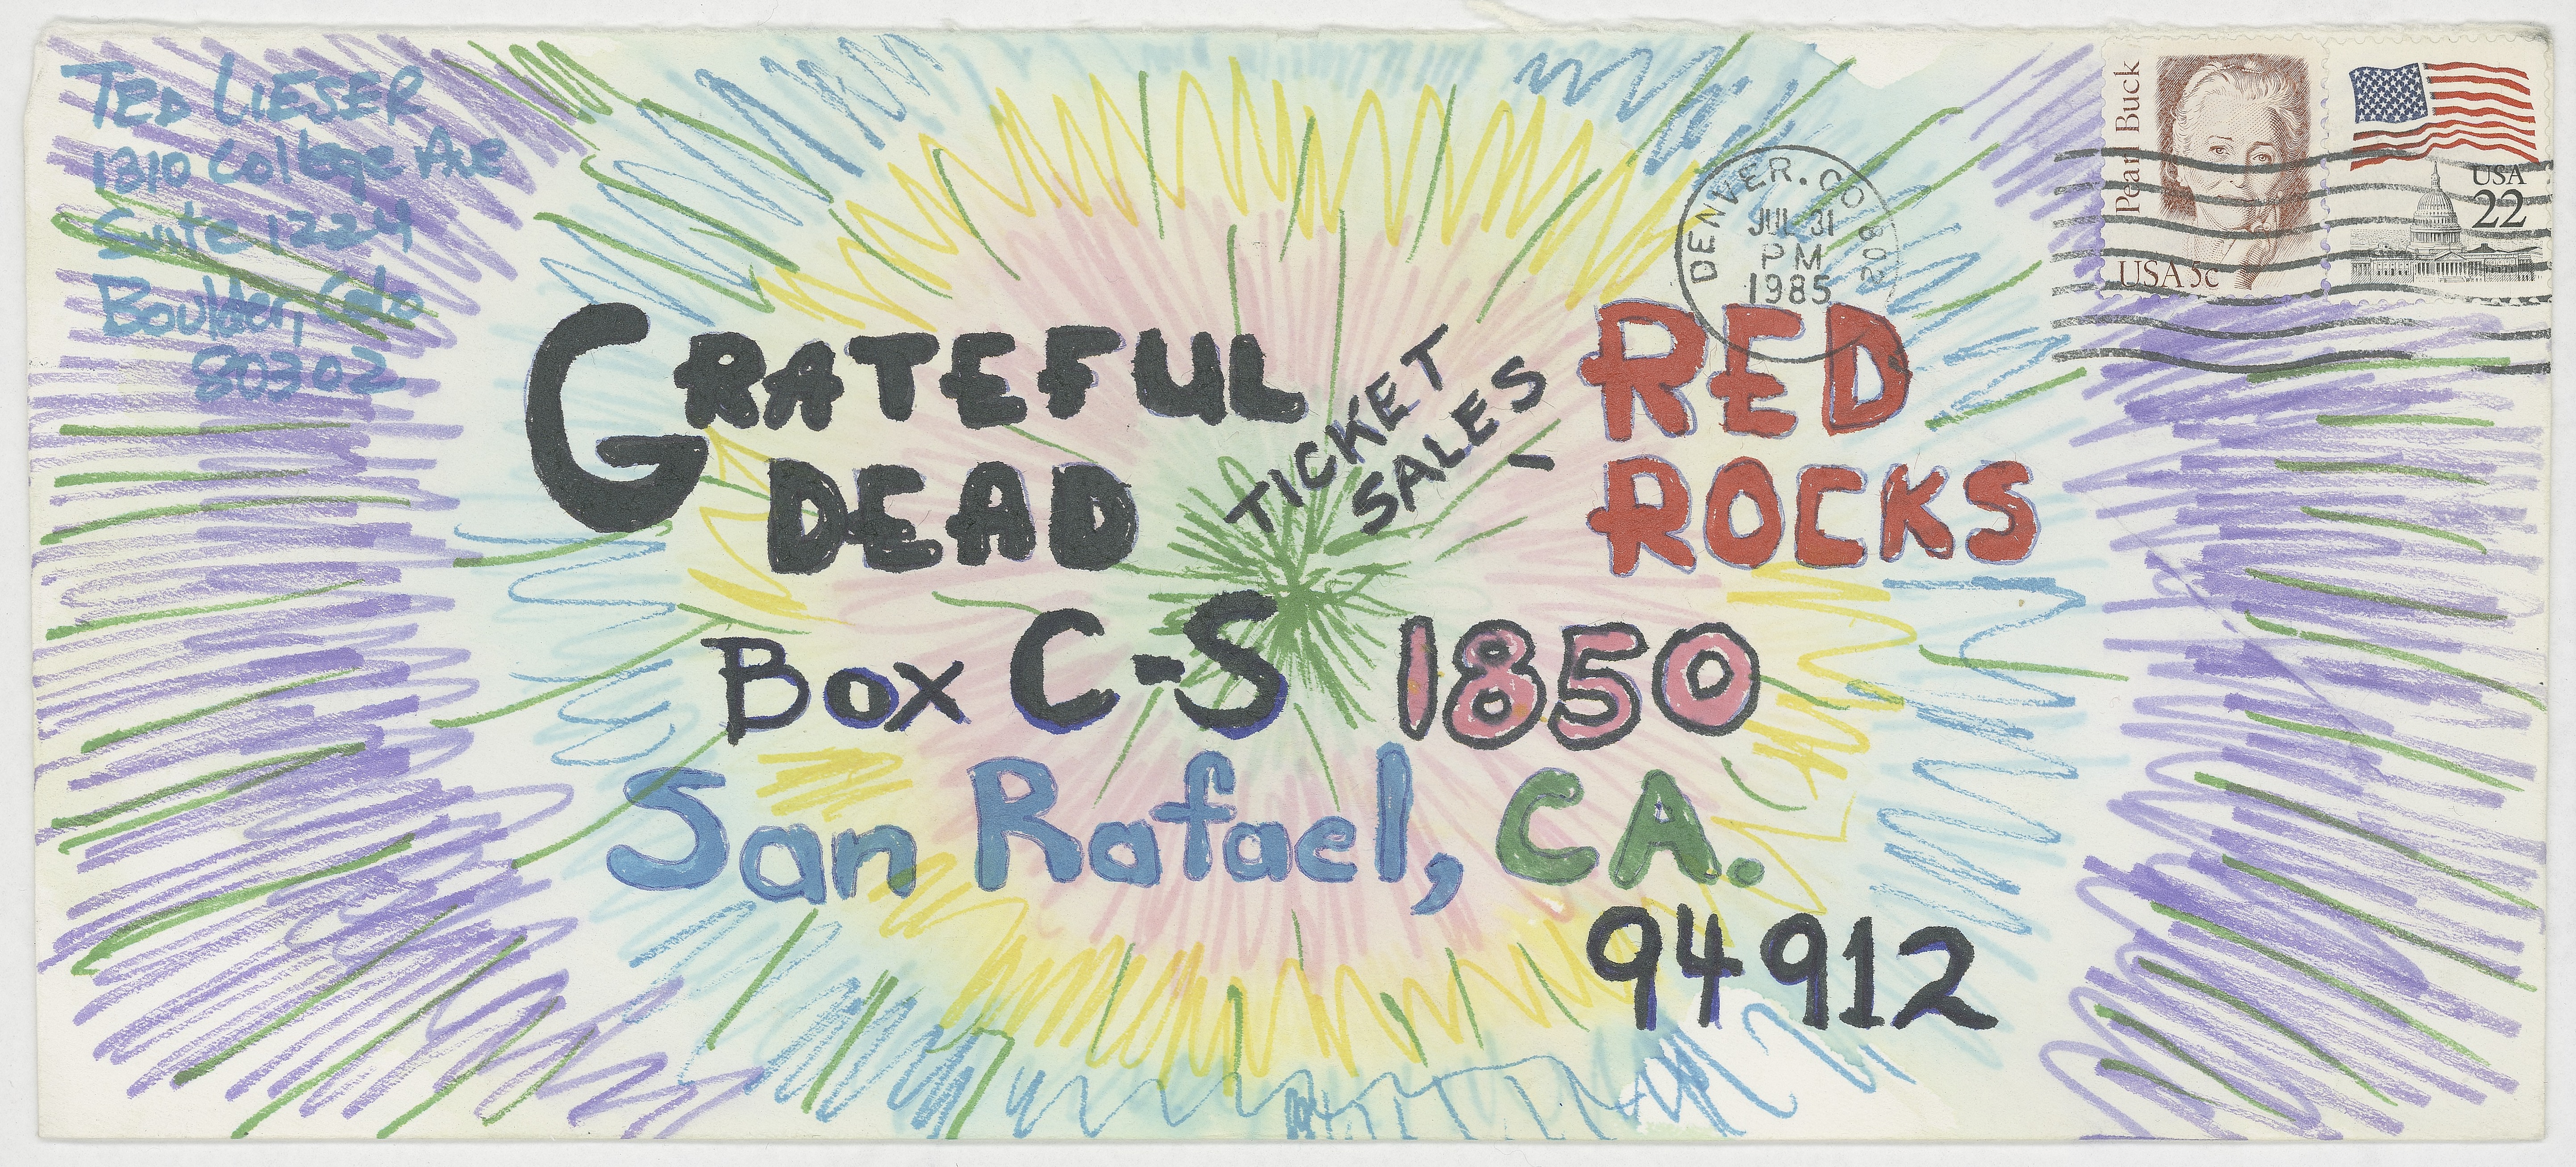 TED LIESER
1810 College Ave
Suite 1224
Boulder, Colo
80302
Pearl Buck
USA 5c
USA
22
DENVER. CO 802
JUL 31
PM
1985
GRATEFUL
DEAD
TICKET
SALES
RED
ROCKS
Box C-S 1850
San Rafael, CA.
94912